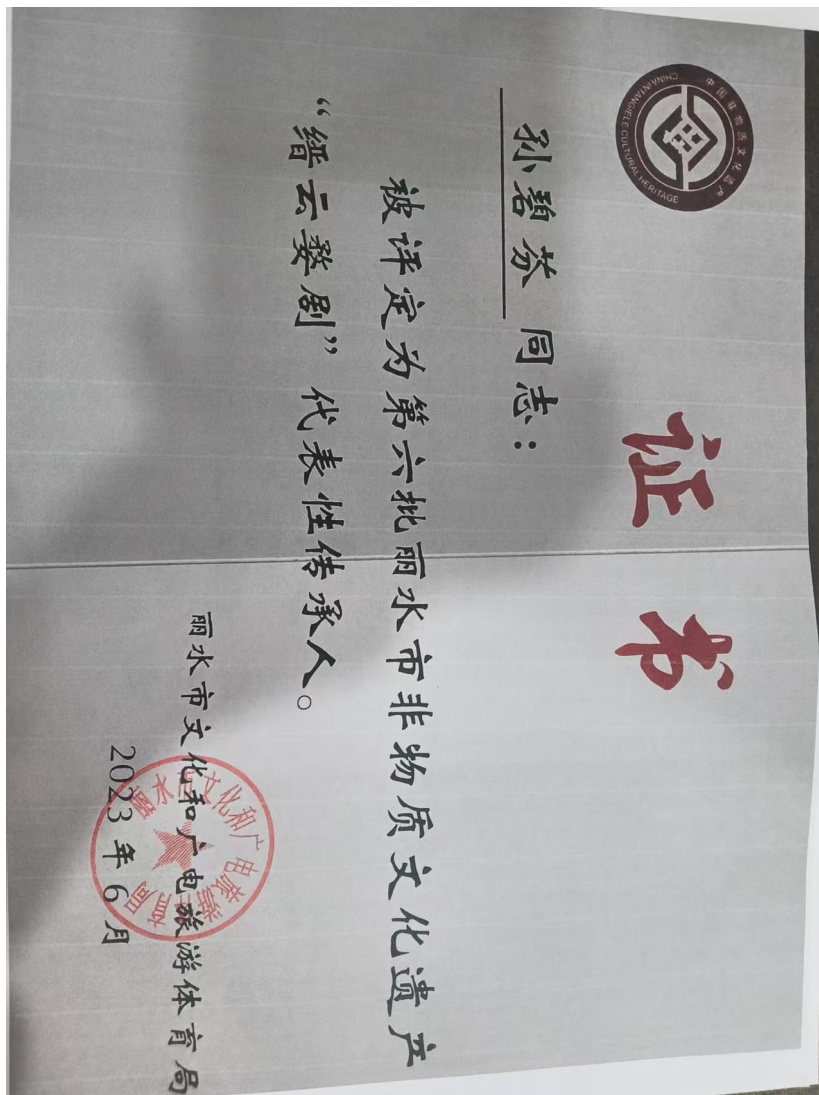 中国非物质文化遗产
CHINA INTANGIELE CULTURAL HERITAGE
证书
孙碧芬 同志：
被评定为第六批丽水市非物质文化遗产
“缙云婺剧”代表性传承人。
丽水市文化和广电旅游体育局
2023年6月
丽水市文化和广电旅游体育局